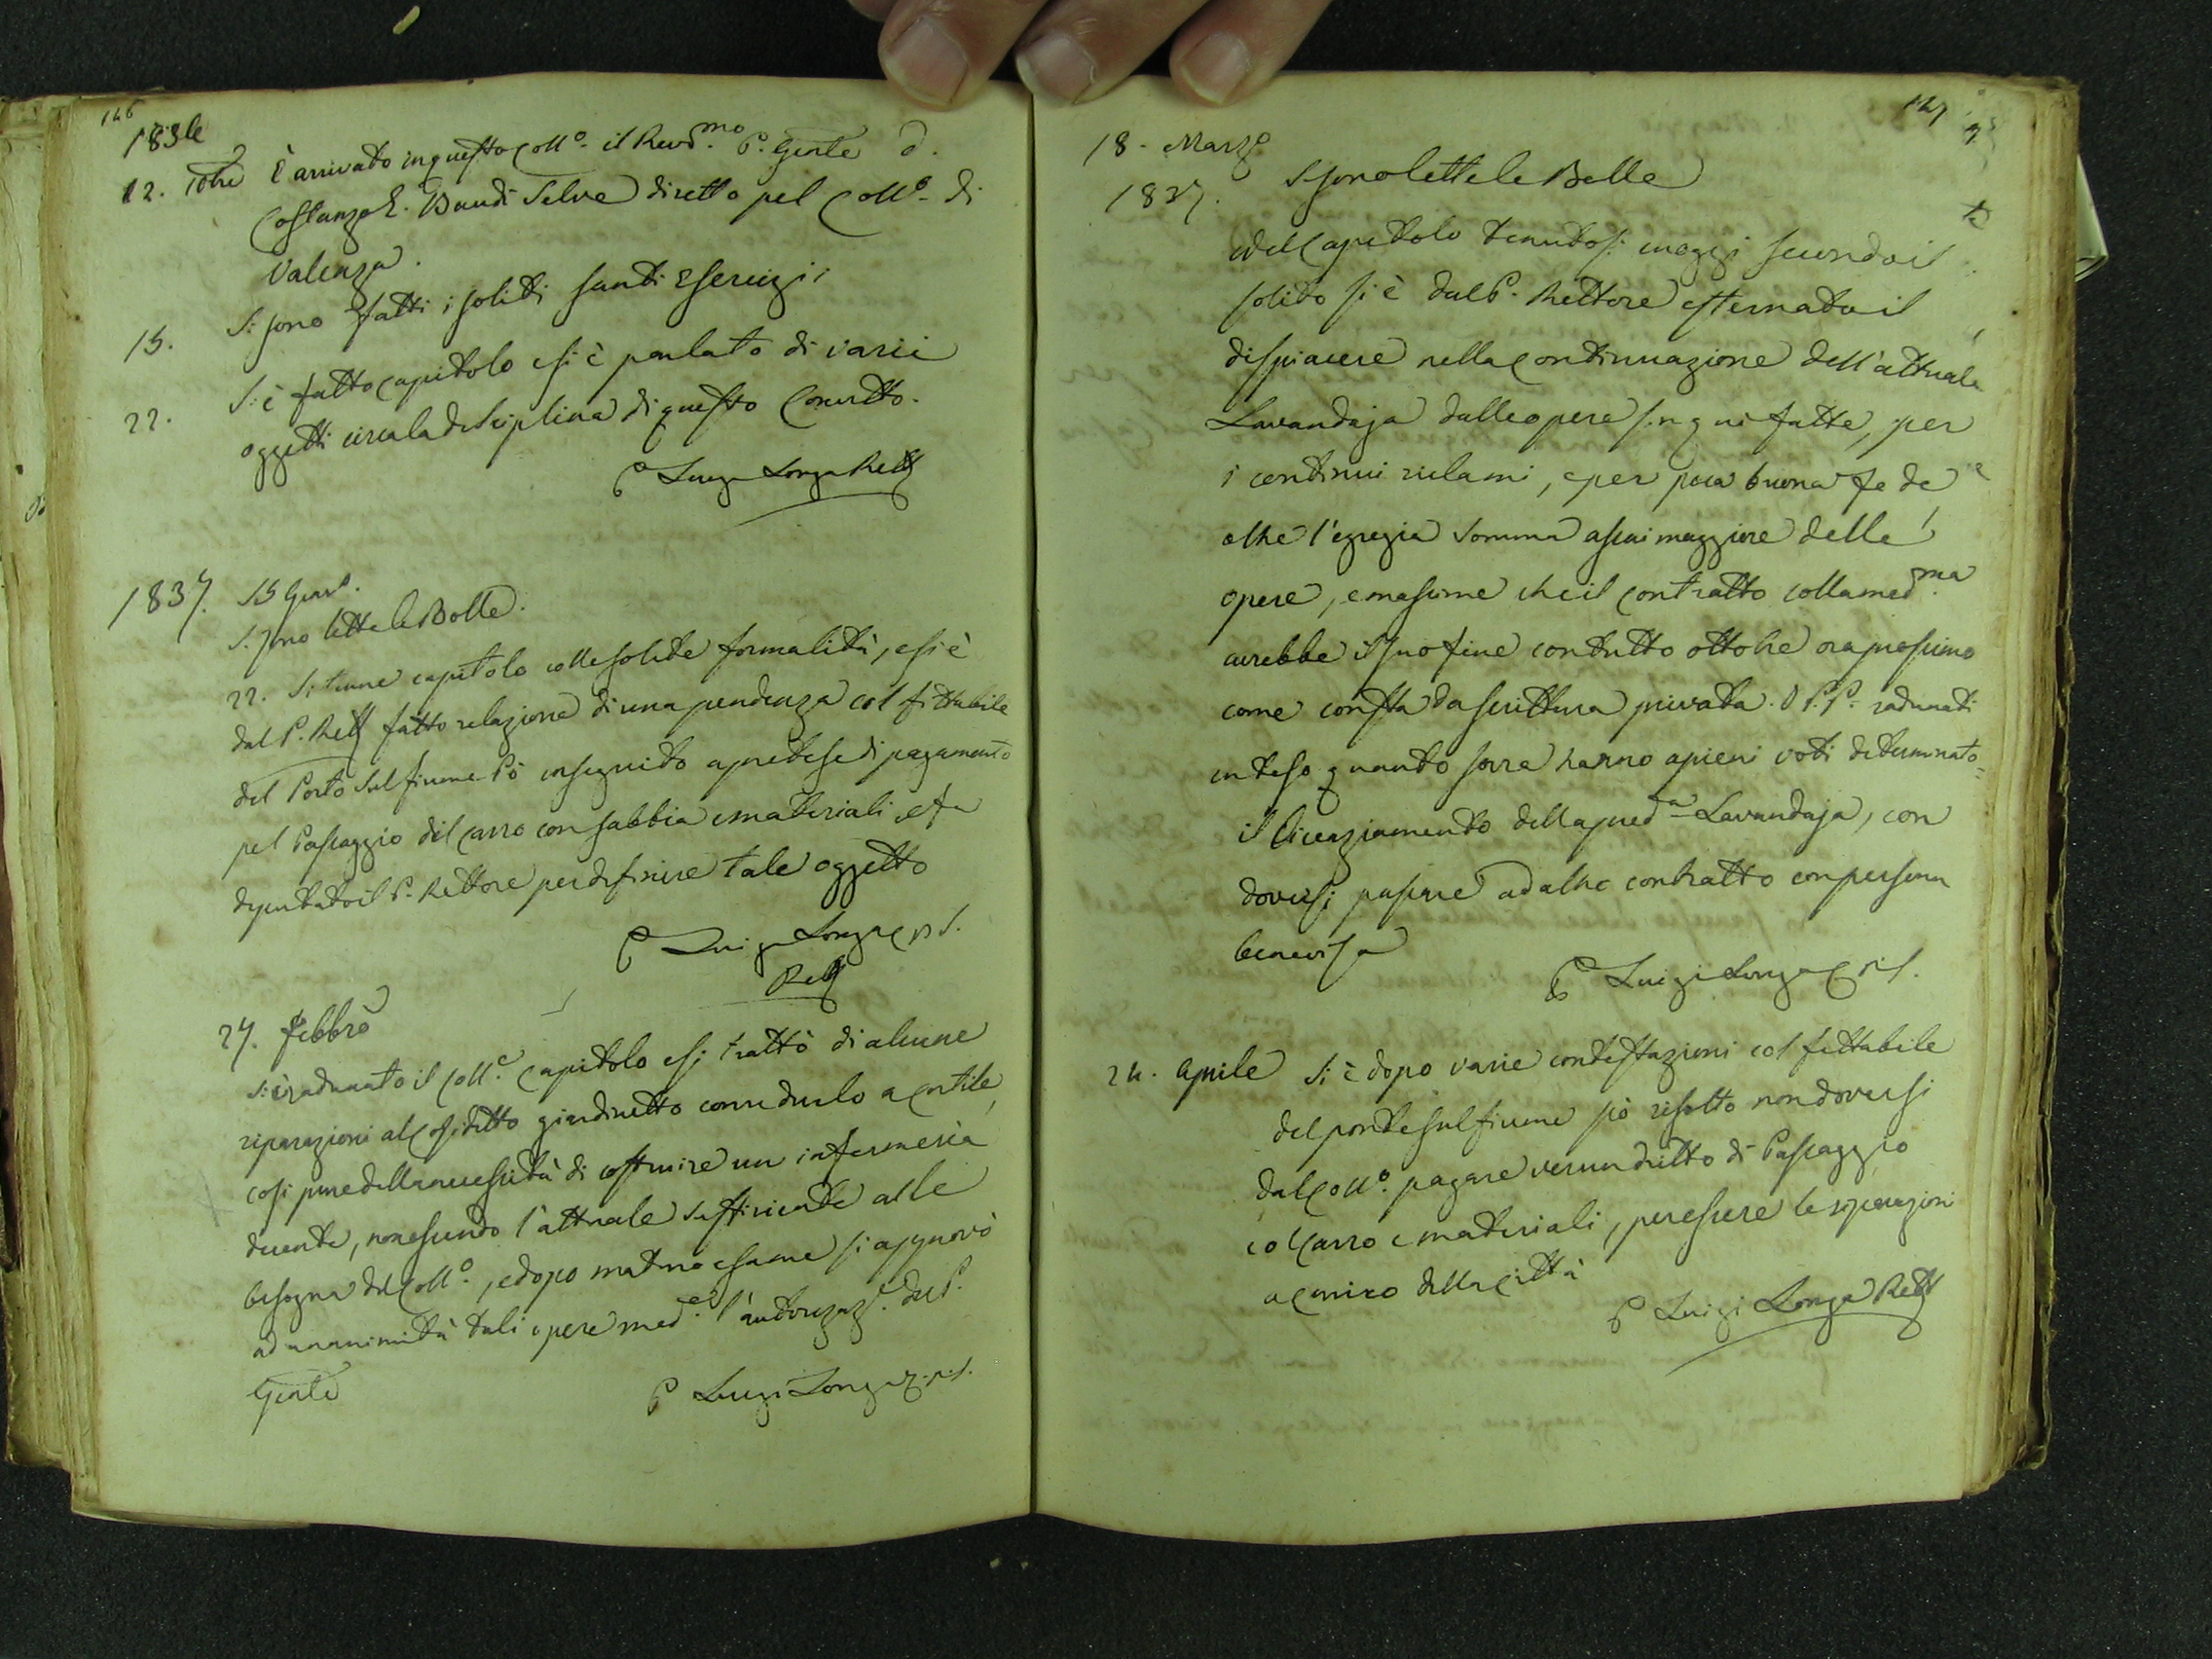 146
1836
12. 10bre È arrivato in questo Coll.º il Revd.mo P. Gnle D.
Costanzo E. Bandi Selve diretto pel Coll.º di
Valenza.
15. Si sono fatti i soliti santi Esercizii
22. Si è fatto capitolo e si è parlato di varii
oggetti circa la disciplina di questo Convitto.
P Luigi Longa Rett
1837. 15 Genº.
Si sono lette le Bolle.
22. Si tenne capitolo colle solite formalità, e si è
dal P. Rett fatto relazione di una pendenza col fittabile
del Porto sul fiume Pò in seguito a pretese di pagamento
pel Passaggio del carro con sabbia e materiali, e fu
deputato il P. Rettore per definire tale oggetto
P Luigi Longa C.R.S.
Rett
27. Febbrº
Si è radunato il Coll.º Capitolo e si trattò di alcune
riparazioni al così detto giardinetto con ridurlo a Cortile,
così pure della necessità di costruire un infermeria
decente, non essendo l'attuale sufficiente alle
bisogna del Coll.º, e dopo maturo esame si approvò
ad unanimità tali opere med.e l'autorizaz.e del P.
Gnle
P Luigi Longa C.R.S.
147
18. Marzo
1837. Si sono lette le Bolle
e del Capitolo tenutosi in oggi secondo il
solito si è dal P. Rettore esternato il
dispiacere nella continuazione dell'attuale
Lavandaja dalle opere sin qui fatte, per
i continui riclami, e per poca buona fede
oltre l'egregia somma assai maggiore delle
opere, e massime che il contratto colla med.ma
avrebbe il suo fine con tutto ottobre ora prossimo
come consta da scrittura privata. I P.P. radunati
inteso quanto sovra hanno a pieni voti determinato
il licenziamento della pred.a Lavandaja, con
doversi passare ad altro contratto con persona
benevisa
P Luigi Longa C.R.S.
24. Aprile Si è dopo varie contestazioni col fittabile
del ponte sul fiume pò risolto non doversi
dal Coll.º pagare verun dritto di Passaggio
col carro e materiali, per essere le riparazioni
a carico della Città
P Luigi Longa Rett